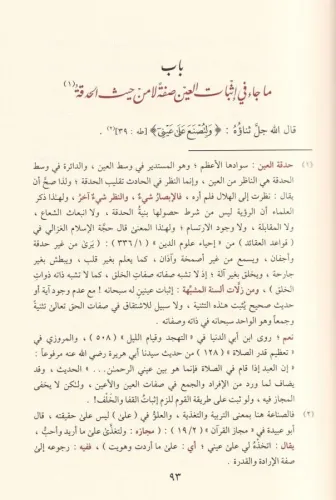 باب
ما جاء في إثبات العين صفة لا من حيث الحدقة (١)
قال الله جلَّ ثناؤُهُ : ﴿ وَلِتُصْنَعَ عَلَىٰ عَيْنِي ﴾ [طه : ٣٩] (٢) .
(١) حدقة العين : سوادها الأعظم ؛ وهو المستدير في وسط العين ، والدائرة في وسط
الحدقة هي الناظر من العين ، وإنما النظر في الحادث تقليب الحدقة ؛ ولذا صحَّ أن
يقال : نظرت إلى الهلال فلم أره ، فالإبصار شيءٌ ، والنظر شيءٌ آخرُ ، ولهذا ذكر
العلماء أن الرؤية ليس من شرط حصولها بنيةُ الحدقة ، ولا انبعاث الشعاع ،
ولا المقابلة ، ولا وجود الارتسام ؛ ولهذا المعنى قال حجة الإسلام الغزالي في
( قواعد العقائد ) من « إحياء علوم الدين » ( ٣٣٦/١ ) : ( يَرىٰ من غير حدقة
وأجفان ، ويسمع من غير أصمخة وآذان ، كما يعلم بغير قلب ، ويبطش بغير
جارحة ، ويخلق بغير آلة ؛ إذ لا تشبه صفاته صفات الخلق ، كما لا تشبه ذاته ذوات
الخلق ) ، ومن زلَّات ألسنة المشبِّهة : إثبات عينين له سبحانه ! مع عدم وجود آية أو
حديث صحيح يُثبت هذه التثنية ، ولا سبيل للاشتقاق في صفات الحق تعالىٰ تثنيةً
وجمعاً وهو الواحد سبحانه في ذاته وصفاته .
نعم ؛ روى ابن أبي الدنيا في « التهجد وقيام الليل » ( ٥٠٨ ) ، والمروزي في
« تعظيم قدر الصلاة » ( ١٢٨ ) من حديث سيدنا أبي هريرة رضي الله عنه مرفوعاً :
« إن العبد إذا قام في الصلاة فإنما هو بين عيني الرحمن... » الحديث ، وهذه
يضاف لما ورد من الإفراد والجمع في صفات العين والأعين ، ولكن لا يخفى
المجاز فيه ، ولو ثبت على طريقة القوم للزم إثباتُ القفا والخَلْف !
(٢) فالصناعة هنا بمعنى التربية والتغذية ، والعلوُّ في ( على ) ليس على حقيقته ، قال
أبو عبيدة في « مجاز القرآن » ( ١٩/٢ ) : ( مجازه : ولتغذَّىٰ على ما أريد وأحبُّ ،
يقال : اتخذه لي على عيني ؛ أي : على ما أردت وهويت ) ، ففيه : رجوعه إلى
صفة الإرادة والقدرة .
٩٣